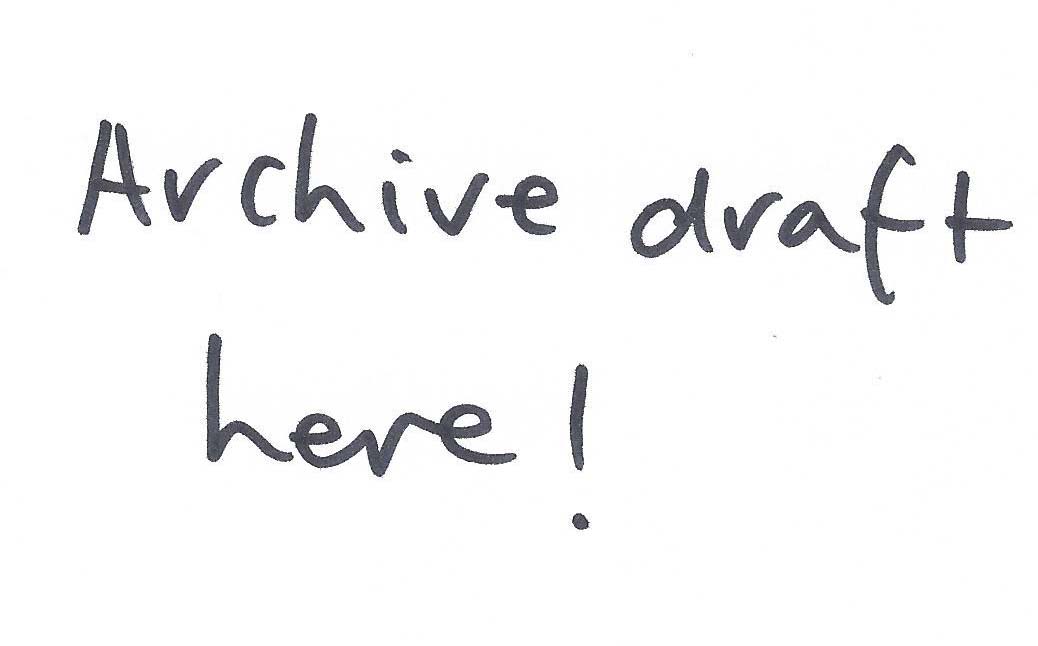 Archive draft
here!